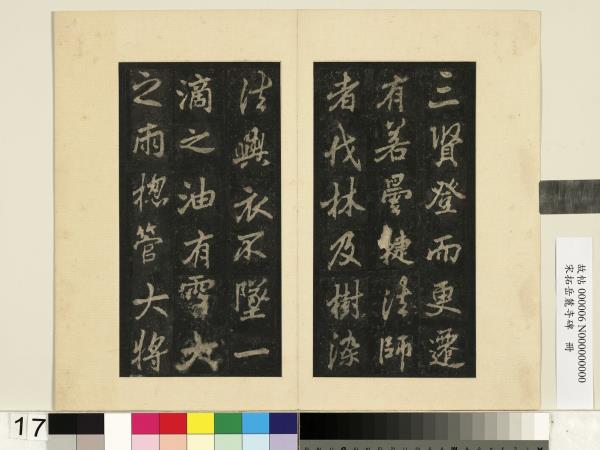 三賢登而更遷
有若曇捷法師
者伐林及樹染
法興衣不墜一
滴之油有雪大
之雨揔管大将
故帖 000006 N000000000
宋拓岳麓寺碑 册
17